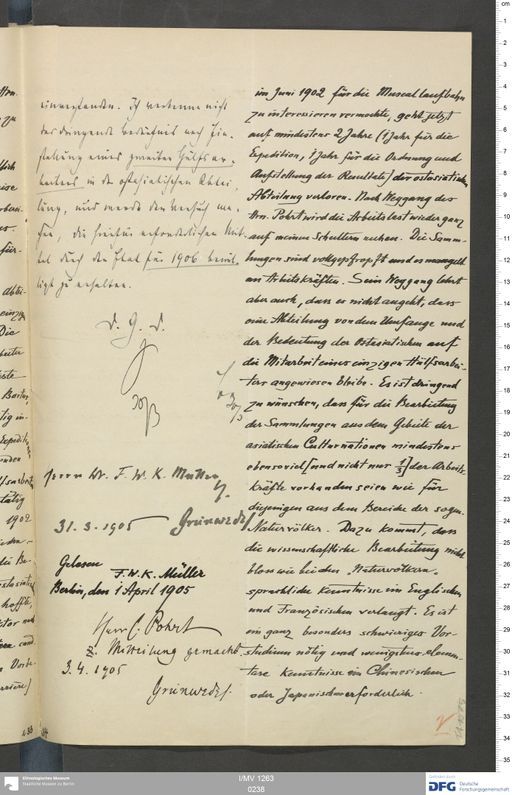 einverstanden. Ich verkenne nicht
das dringende Bedürfnis nach Ein-
stellung eines zweiten Hülfsar-
beiters in der ostasiatischen Abtei-
lung, und werde den Versuch ma-
chen, die hierfür erforderlichen Mit-
tel durch den Etat für 1906 bewil-
ligt zu erhalten.
D. G. D.
Herrn Dr. F. W. K. Müller
31.3.1905 Grünwedel
Gelesen
F. W. K. Müller
Berlin, den 1 April 1905
Herrn C. Pohrt
Mitteilung gemacht.
3.4.1905
Grünwedel.
im Juni 1902 für die Museallaufbahn
zu interessieren vermochte, geht jetzt
auf mindestens 2 Jahre (1 Jahr für die
Expedition, 1 Jahr für die Ordnung und
Aufstellung der Resultate) der ostasiatischen
Abteilung verloren. Nach Weggang des
Hrn. Pohrt wird die Arbeitslast wieder ganz
auf meinen Schultern ruhen. Die Samm-
lungen sind vollgepfropft und es mangelt
an Arbeitskräften. Sein Weggang lehrt
aber auch, dass es nicht angeht, dass
eine Abteilung von dem Umfange und
der Bedeutung der Ostasiatischen auf
die Mitarbeit eines einzigen Hülfsarbei-
ters angewiesen bleibe. Es ist dringend
zu wünschen, dass für die Bearbeitung
der Sammlungen aus dem Gebiete der
asiatischen Culturnationen mindestens
ebensoviel [und nicht nur 1/3] der Arbeits-
kräfte vorhanden seien wie für
diejenigen aus dem Bereiche der sogen.
Naturvölker. Dazu kommt, dass
die wissenschaftliche Bearbeitung nicht
bloss wie bei den „Naturvölkern"
sprachliche Kenntnisse im Englischen
und Französischen verlangt. Es ist
ein ganz besonders schwieriges Vor-
studium nötig und wenigstens elemen-
tare Kenntnisse im Chinesischen
oder Japanischen erforderlich.
Ethnologisches Museum
Staatliche Museen zu Berlin
I/MV 1263
0238
DFG Deutsche
Forschungsgemeinschaft